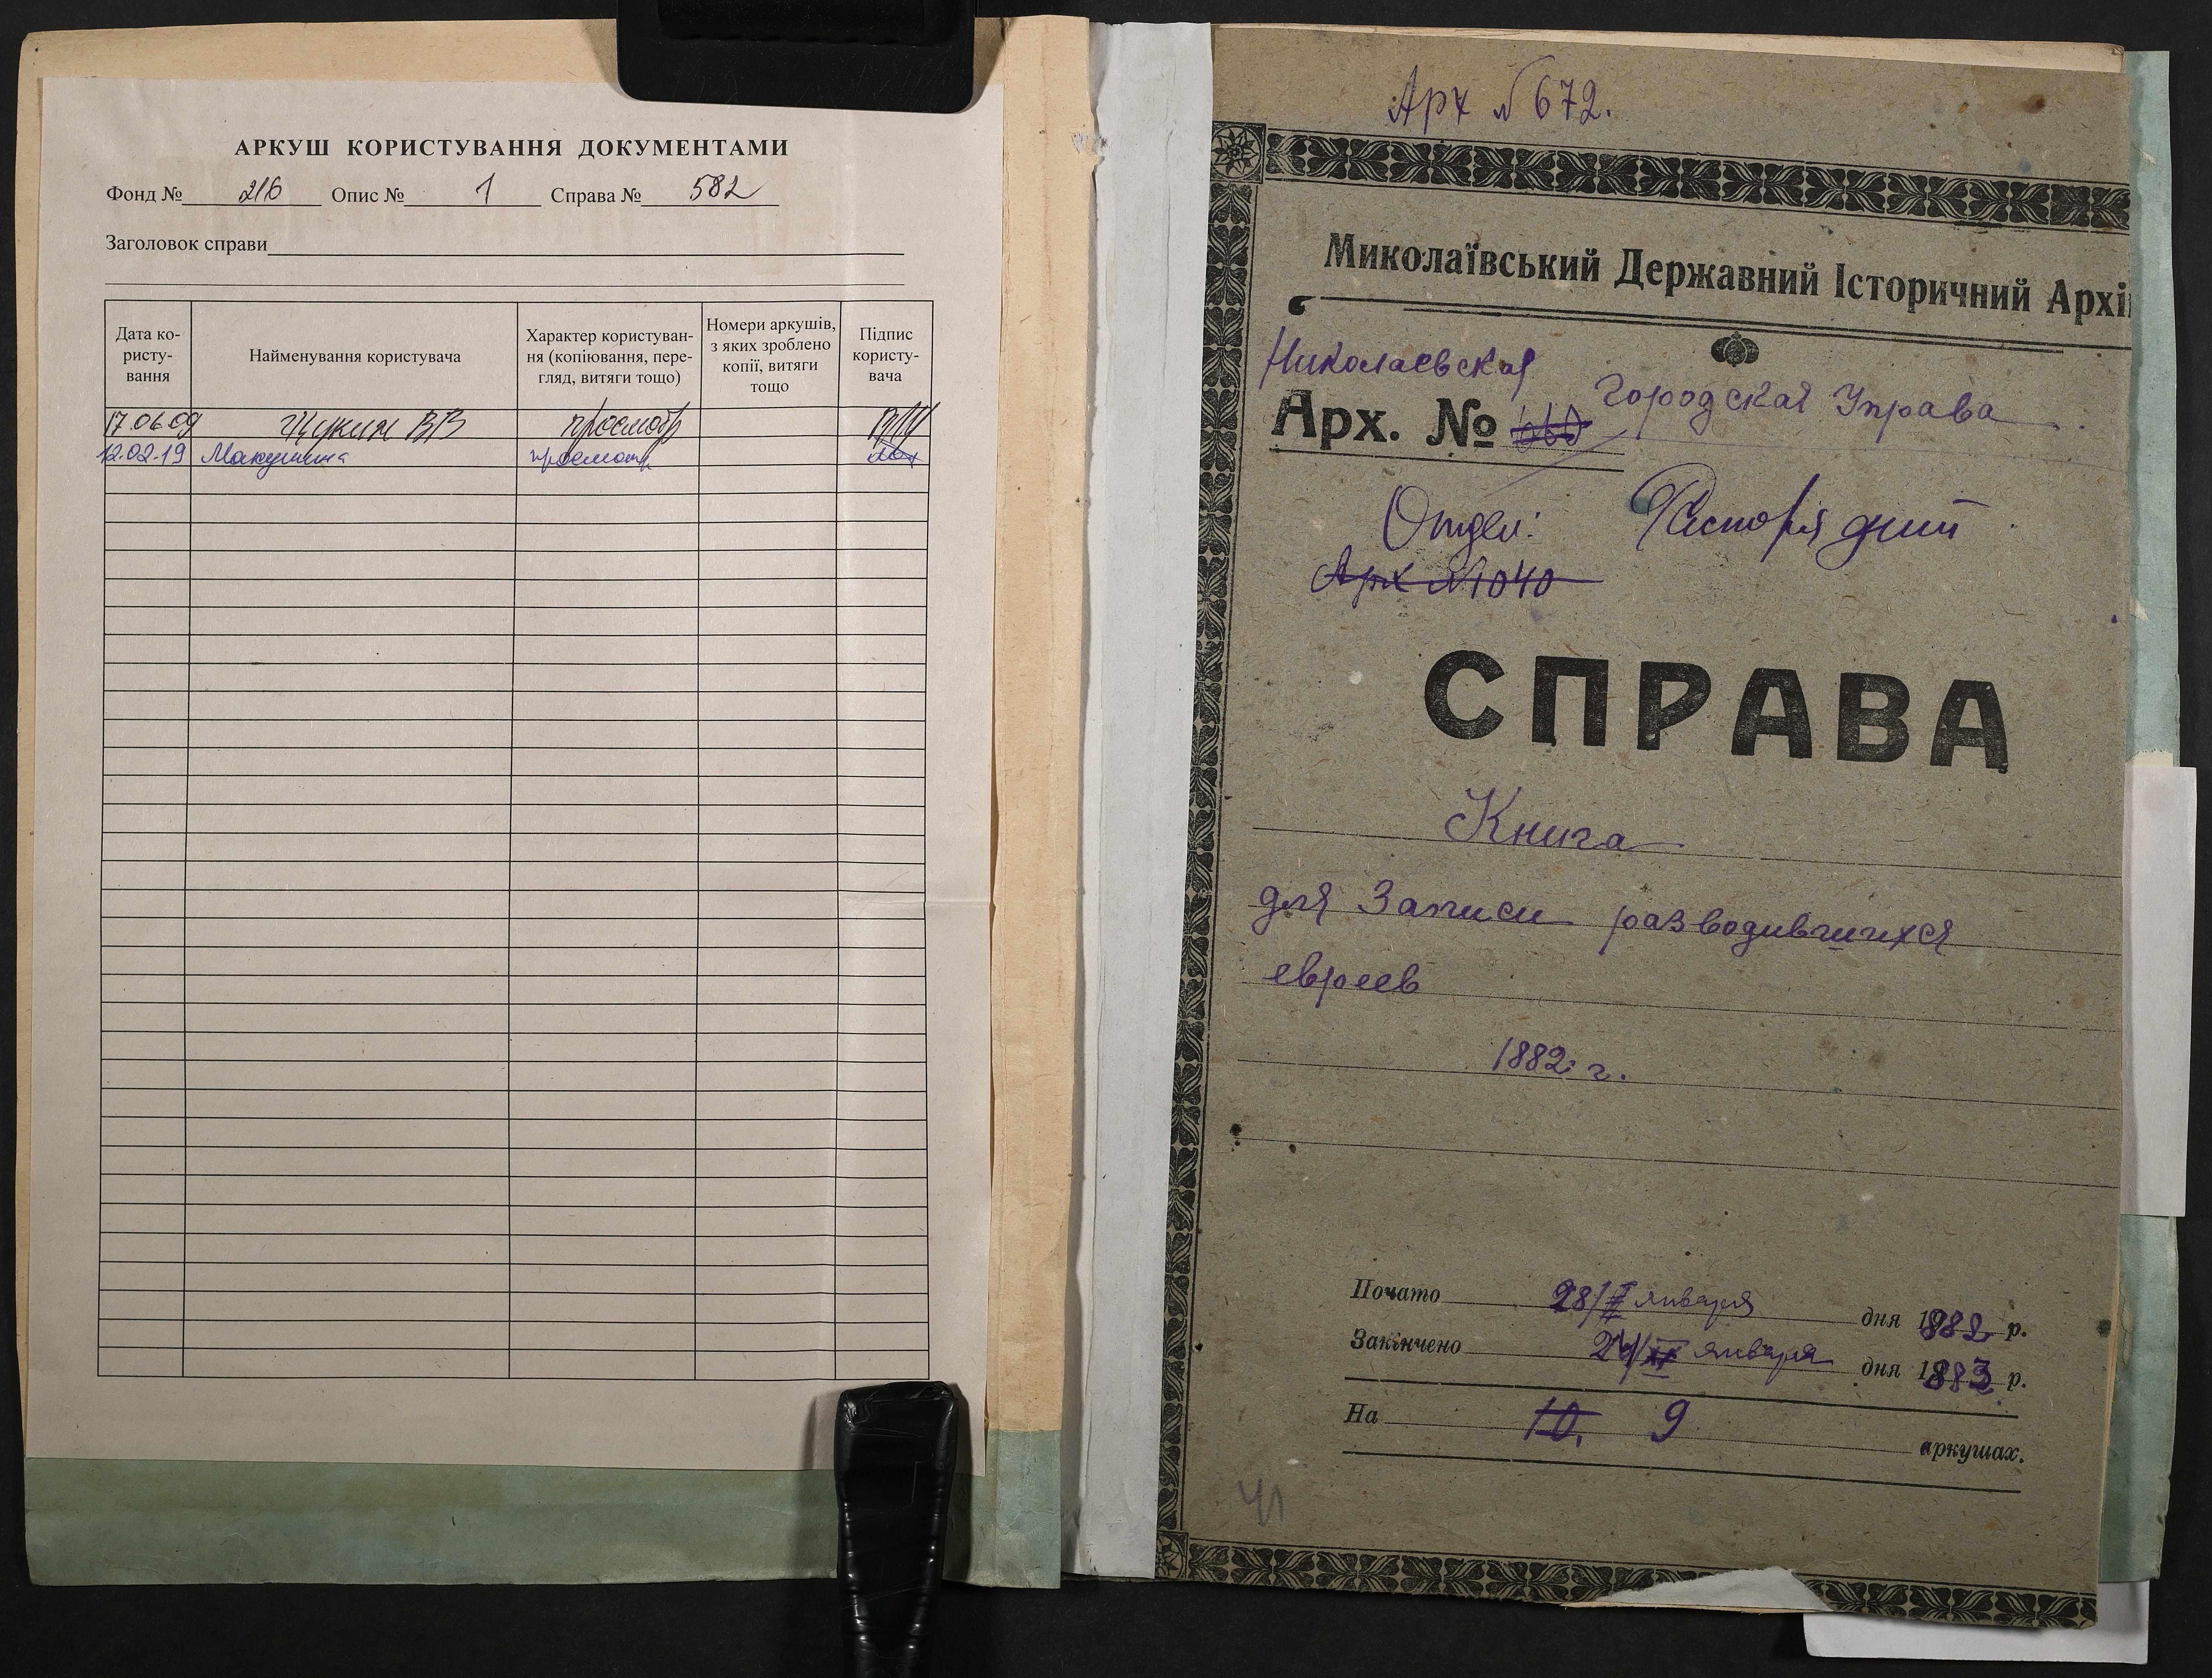 АРКУШ КОРИСТУВАННЯ ДОКУМЕНТАМИ
Фонд № 216 Опис № 1 Справа № 582
Заголовок справи
Дата ко-
ристу-
вання
Найменування користувача
Характер користуван-
ня (копіювання, пере-
гляд, витяги тощо)
Номери аркушів,
з яких зроблено
копії, витяги
тощо
Підпис
користу-
вача
17.06.09 Щукин ВВ просмотр
12.02.19 Макушина просмотр
Арх № 672.
Миколаївський Державний Історичний Архі
Николаевская
Городская Управа
Арх. №
Отдел: Распорядит
Арх № 1040
СПРАВА
Книга
для Записи разводившихся
евреев
1882 г.
Почато 28/II января дня 1882 р.
Закінчено 24/ января дня 1883 р.
На 10. 9 аркушах.
41